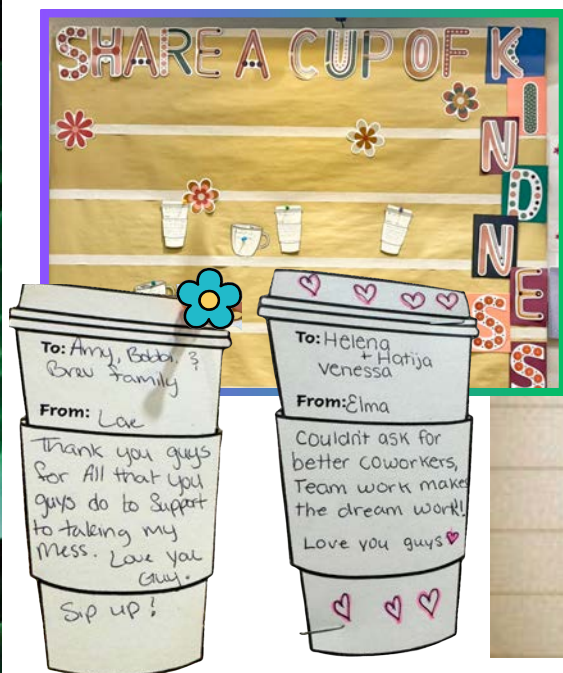 SHARE A CUP OF KINDNESS
To: Amy, Bobbi. &
Brew family
From: Love
Thank you guys
for All that you
guys do to Support
to taking my
mess. Love you
Guy.
Sip up!
To: Helena
+ Hatija
venessa
From: Elma
Couldn't ask for
better coworkers,
Team work makes
the dream work!
Love you guys